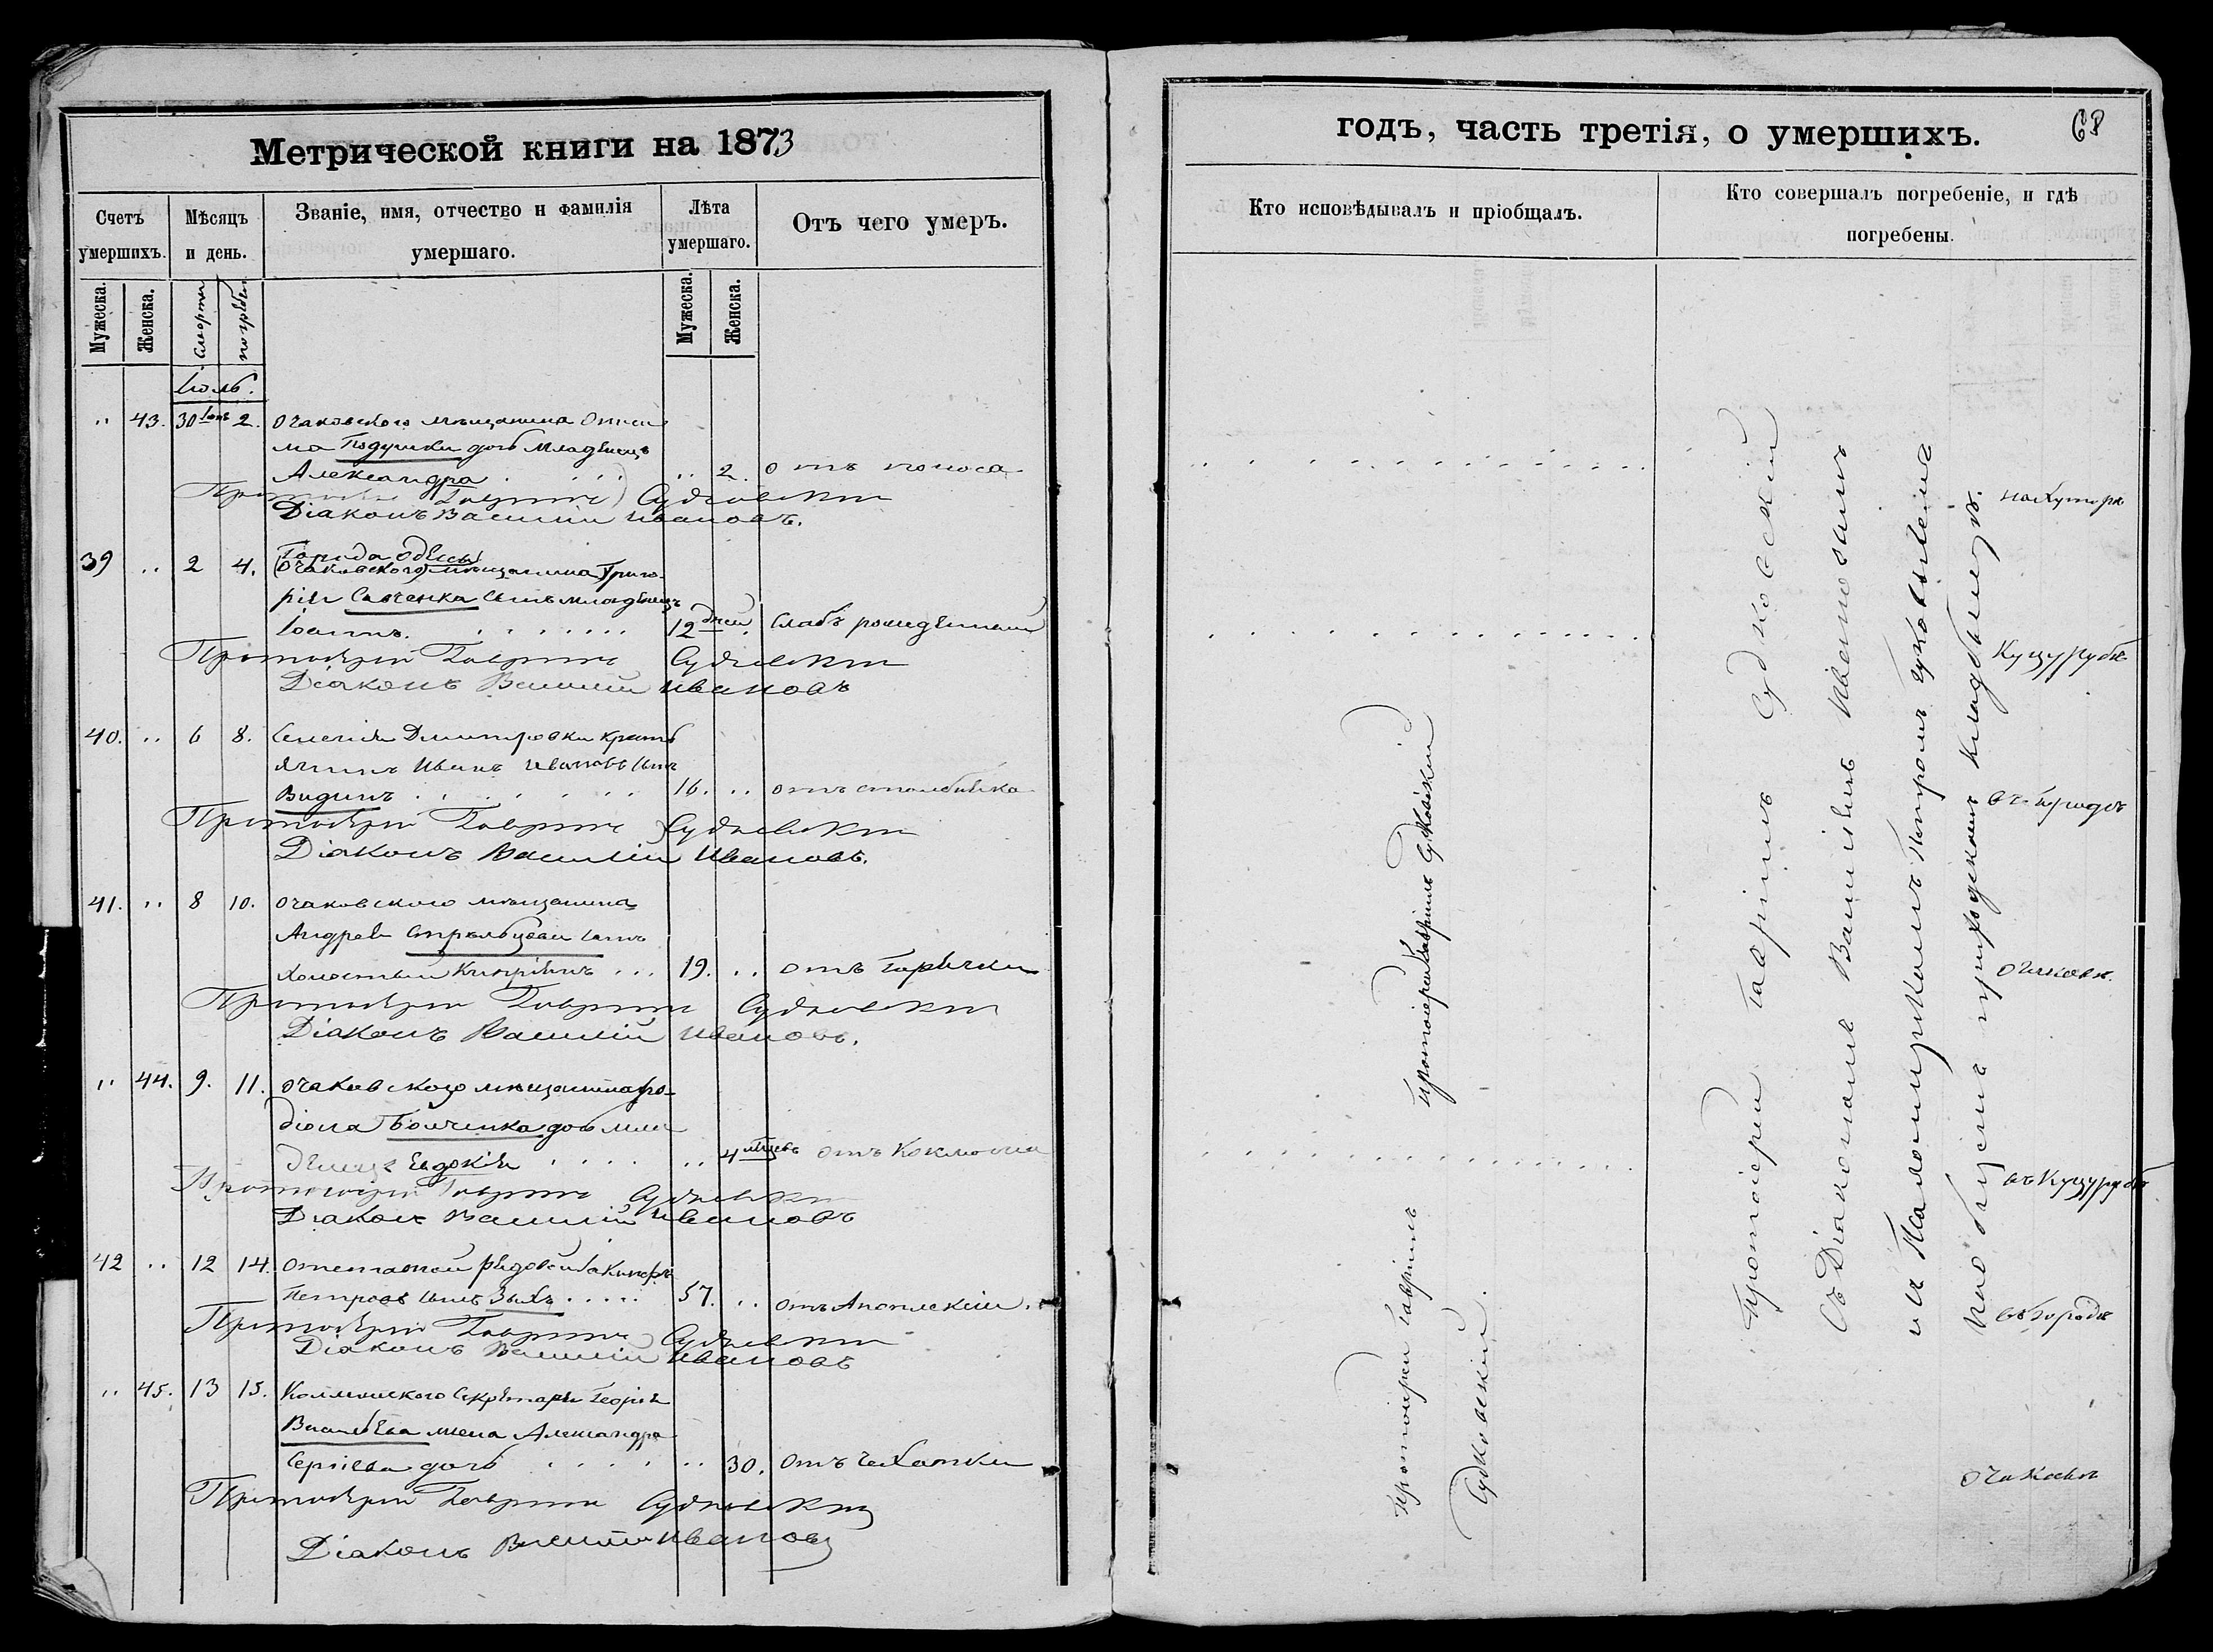 Метрической книги на 1873
Счетъ умершихъ.
Мѣсяцъ и день.
Званіе, имя, отчество и фамилія умершаго.
Лѣта умершаго.
Отъ чего умеръ.
Мужеска.
Женска.
смерти
погребен
Мужеска.
Женска.
Іюль.
" 43. 30 Іюн 2. Очаковского мѣщанина
Подушки дочь младенецъ
Александра . . . . . . 2. отъ поноса
Протоіерей Гавріилъ Судковскій
Діаконъ Василій Ивановъ.
Города Одессы
39 " 2 4. (Очаковского) мѣщанина Григо-
рія Савченка сынъ младенецъ
Іоаннъ. . . . . . . . 12 дней . слабъ рожденіемъ
Протоіерей Гавріилъ Судковскій
Діаконъ Василій Ивановъ
40. " 6 8. Селенія Дмитровки кресть
янинъ Иванъ Ивановъ сынъ
Видинъ . . . . . . . 16. " отъ столбняка
Протоіерей Гавріилъ Судковскій
Діаконъ Василій Ивановъ.
41. " 8 10. Очаковского мѣщанина
Андрея сынъ
холостый Кипріянъ . . . 19. " отъ горячки
Протоіерей Гавріилъ Судковскій
Діаконъ Василій Ивановъ.
" 44. 9. 11. Очаковского мѣщанина Ро-
діона Бойченка дочь мла
денецъ Евдокія . . . . " 4 мѣсяцъ отъ коклюша
Протоіерей Гавріилъ Судковскій
Діаконъ Василій Ивановъ
42 " 12 14. Отставной рядовой
Петровъ сынъ Зыбъ . . . . . 57. " отъ Апоплексіи.
Протоіерей Гавріилъ Судковскій
Діаконъ Василій Ивановъ
" 45. 13 15. Коллежского Секретаря Георгія
Васильева жена Александра
Сергіева дочь . . . . . " 30. отъ чахотки
Протоіерей Гавріилъ Судковскій
Діаконъ Василій Ивановъ
годъ, часть третія, о умершихъ.
68
Кто исповѣдывалъ и пріобщалъ.
Кто совершалъ погребеніе, и гдѣ погребены.
Протоіерей Гавріилъ Судковскій
Протоіерей Гавріилъ
Судковскій.
Протоіерей Гавріилъ Судковскій
съ Діакономъ Василіемъ Ивановымъ
и Псаломщикомъ Петромъ
на приходскомъ кладбищѣ.
на хуторѣ
Куцурубѣ
въ городѣ
Очаковѣ.
въ Куцурубѣ
въ городѣ
Очаковѣ